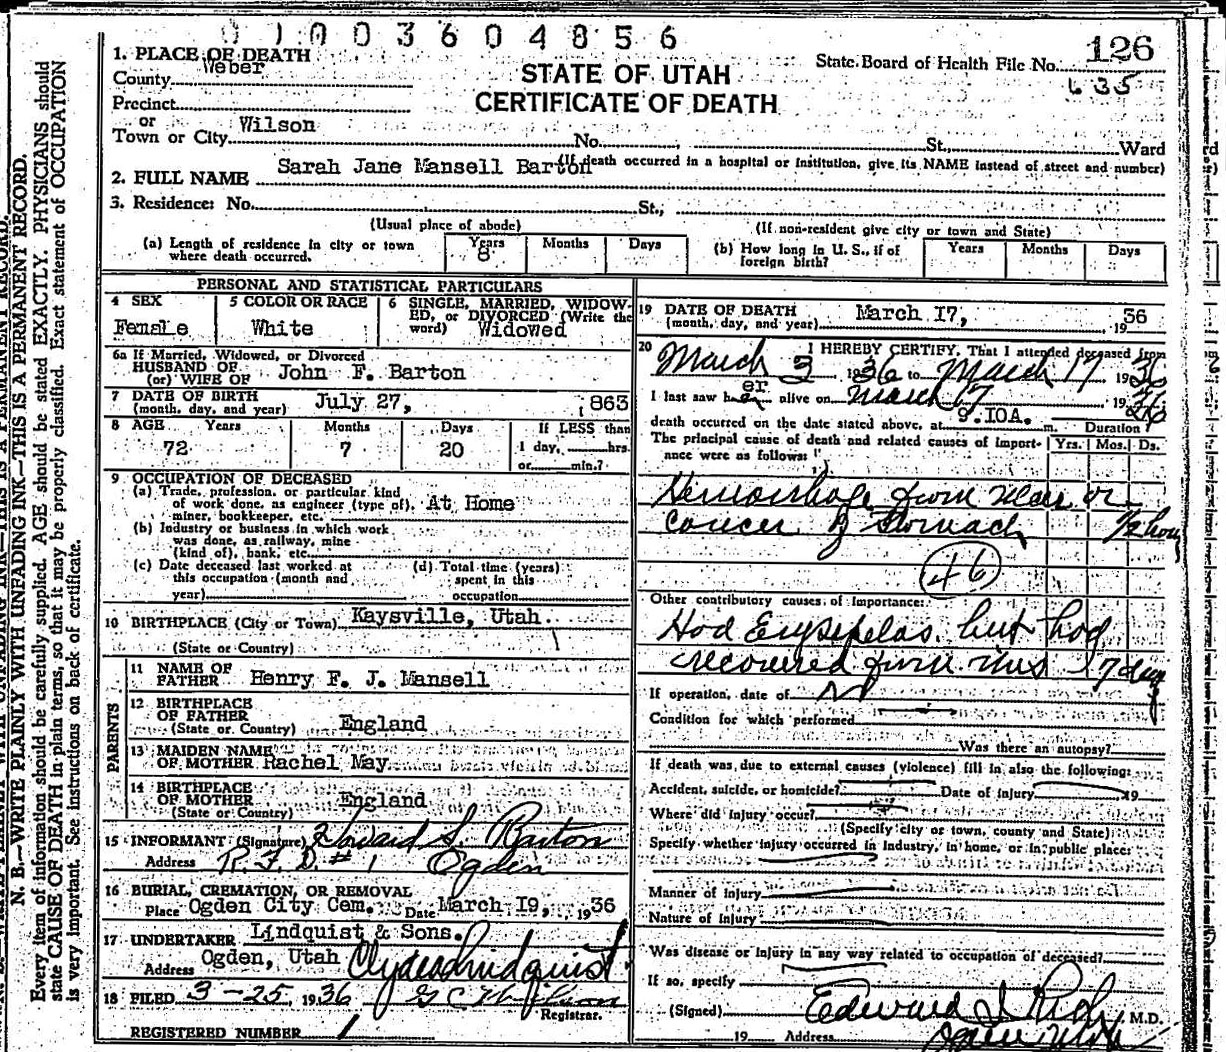 0 1 0 0 3 6 0 4 8 5 6
1. PLACE OF DEATH
County Weber
STATE OF UTAH
CERTIFICATE OF DEATH
State Board of Health File No. 126
635
Precinct
or
Town or City Wilson No. St., Ward
(If death occurred in a hospital or institution, give its NAME instead of street and number)
2. FULL NAME Sarah Jane Mansell Barton
3. Residence: No. St.,
(Usual place of abode) (If non-resident give city or town and State)
(a) Length of residence in city or town where death occurred. Years 8 Months Days
(b) How long in U. S., if of foreign birth? Years Months Days
PERSONAL AND STATISTICAL PARTICULARS
4 SEX Female
5 COLOR OR RACE White
6 SINGLE, MARRIED, WIDOW-
ED, or DIVORCED (Write the
word) Widowed
6a If Married, Widowed, or Divorced
HUSBAND OF
(or) WIFE OF John F. Barton
7 DATE OF BIRTH
(month, day, and year) July 27, 1863
8 AGE Years Months Days If LESS than
72 7 20 1 day, hrs.
or min.?
9 OCCUPATION OF DECEASED
(a) Trade, profession, or particular kind
of work done, as engineer (type of), At Home
miner, bookkeeper, etc.
(b) Industry or business in which work
was done, as railway, mine
(kind of), bank, etc.
(c) Date deceased last worked at
this occupation (month and
year)
(d) Total time (years)
spent in this
occupation
10 BIRTHPLACE (City or Town) Kaysville, Utah.
(State or Country)
PARENTS
11 NAME OF
FATHER Henry F. J. Mansell
12 BIRTHPLACE
OF FATHER
(State or Country) England
13 MAIDEN NAME
OF MOTHER Rachel May
14 BIRTHPLACE
OF MOTHER England
(State or Country)
15 INFORMANT (Signature) Howard S. Barton
Address R. F. D. # 1 Ogden
16 BURIAL, CREMATION, OR REMOVAL
Place Ogden City Cem. Date March 19, 1936
17 UNDERTAKER Lindquist & Sons.
Address Ogden, Utah Clyde Lindquist
18 FILED 3-25, 1936
Registrar.
REGISTERED NUMBER 1
19 DATE OF DEATH
(month, day, and year) March 17, 1936
20 I HEREBY CERTIFY, That I attended deceased from
March 3 1936 to March 17 1936
I last saw her alive on March 17 1936
er
death occurred on the date stated above, at 9.10A. m. Duration
The principal cause of death and related causes of import-
ance were as follows: Yrs. Mos. Ds.
Hemorrhage from ulcer or
cancer of Stomach 1/2 hour
46
Other contributory causes of importance:
Had Erysipelas but had
recovered from this 17 days
If operation, date of No
Condition for which performed
Was there an autopsy?
If death was due to external causes (violence) fill in also the following:
Accident, suicide, or homicide? Date of injury 19
Where did injury occur?
(Specify city or town, county and State)
Specify whether injury occurred in industry, in home, or in public place:
Manner of injury
Nature of injury
Was disease or injury in any way related to occupation of deceased?
If so, specify
(Signed) Edward I. Rich M.D.
19 Address Ogden Utah
N. B.—WRITE PLAINLY WITH UNFADING INK—THIS IS A PERMANENT RECORD.
Every item of information should be carefully supplied. AGE should be stated EXACTLY. PHYSICIANS should
state CAUSE OF DEATH in plain terms, so that it may be properly classified. Exact statement of OCCUPATION
is very important. See instructions on back of certificate.